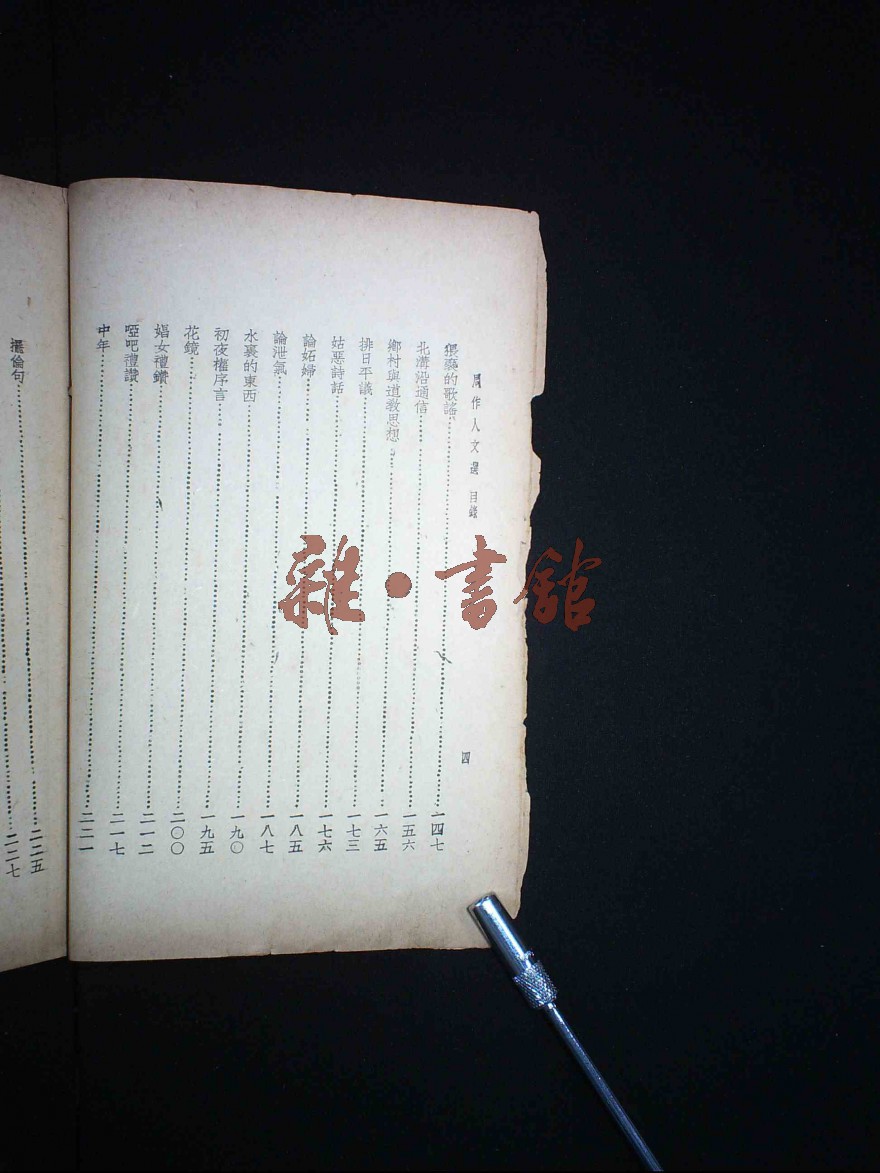 周作人文選 目錄 四
猥褻的歌謠 一四七
北溝沿通信 一五六
鄉村與道教思想 一六五
排日平議 一七三
姑惡詩話 一七六
論妬婦 一八五
論泄氣 一八七
水裏的東西 一九〇
初夜權序言 一九五
花鏡 二〇〇
娼女禮讚 二一二
啞吧禮讚 二一七
中年 二二一
二二五
擺倫句 二二七
雜·書館